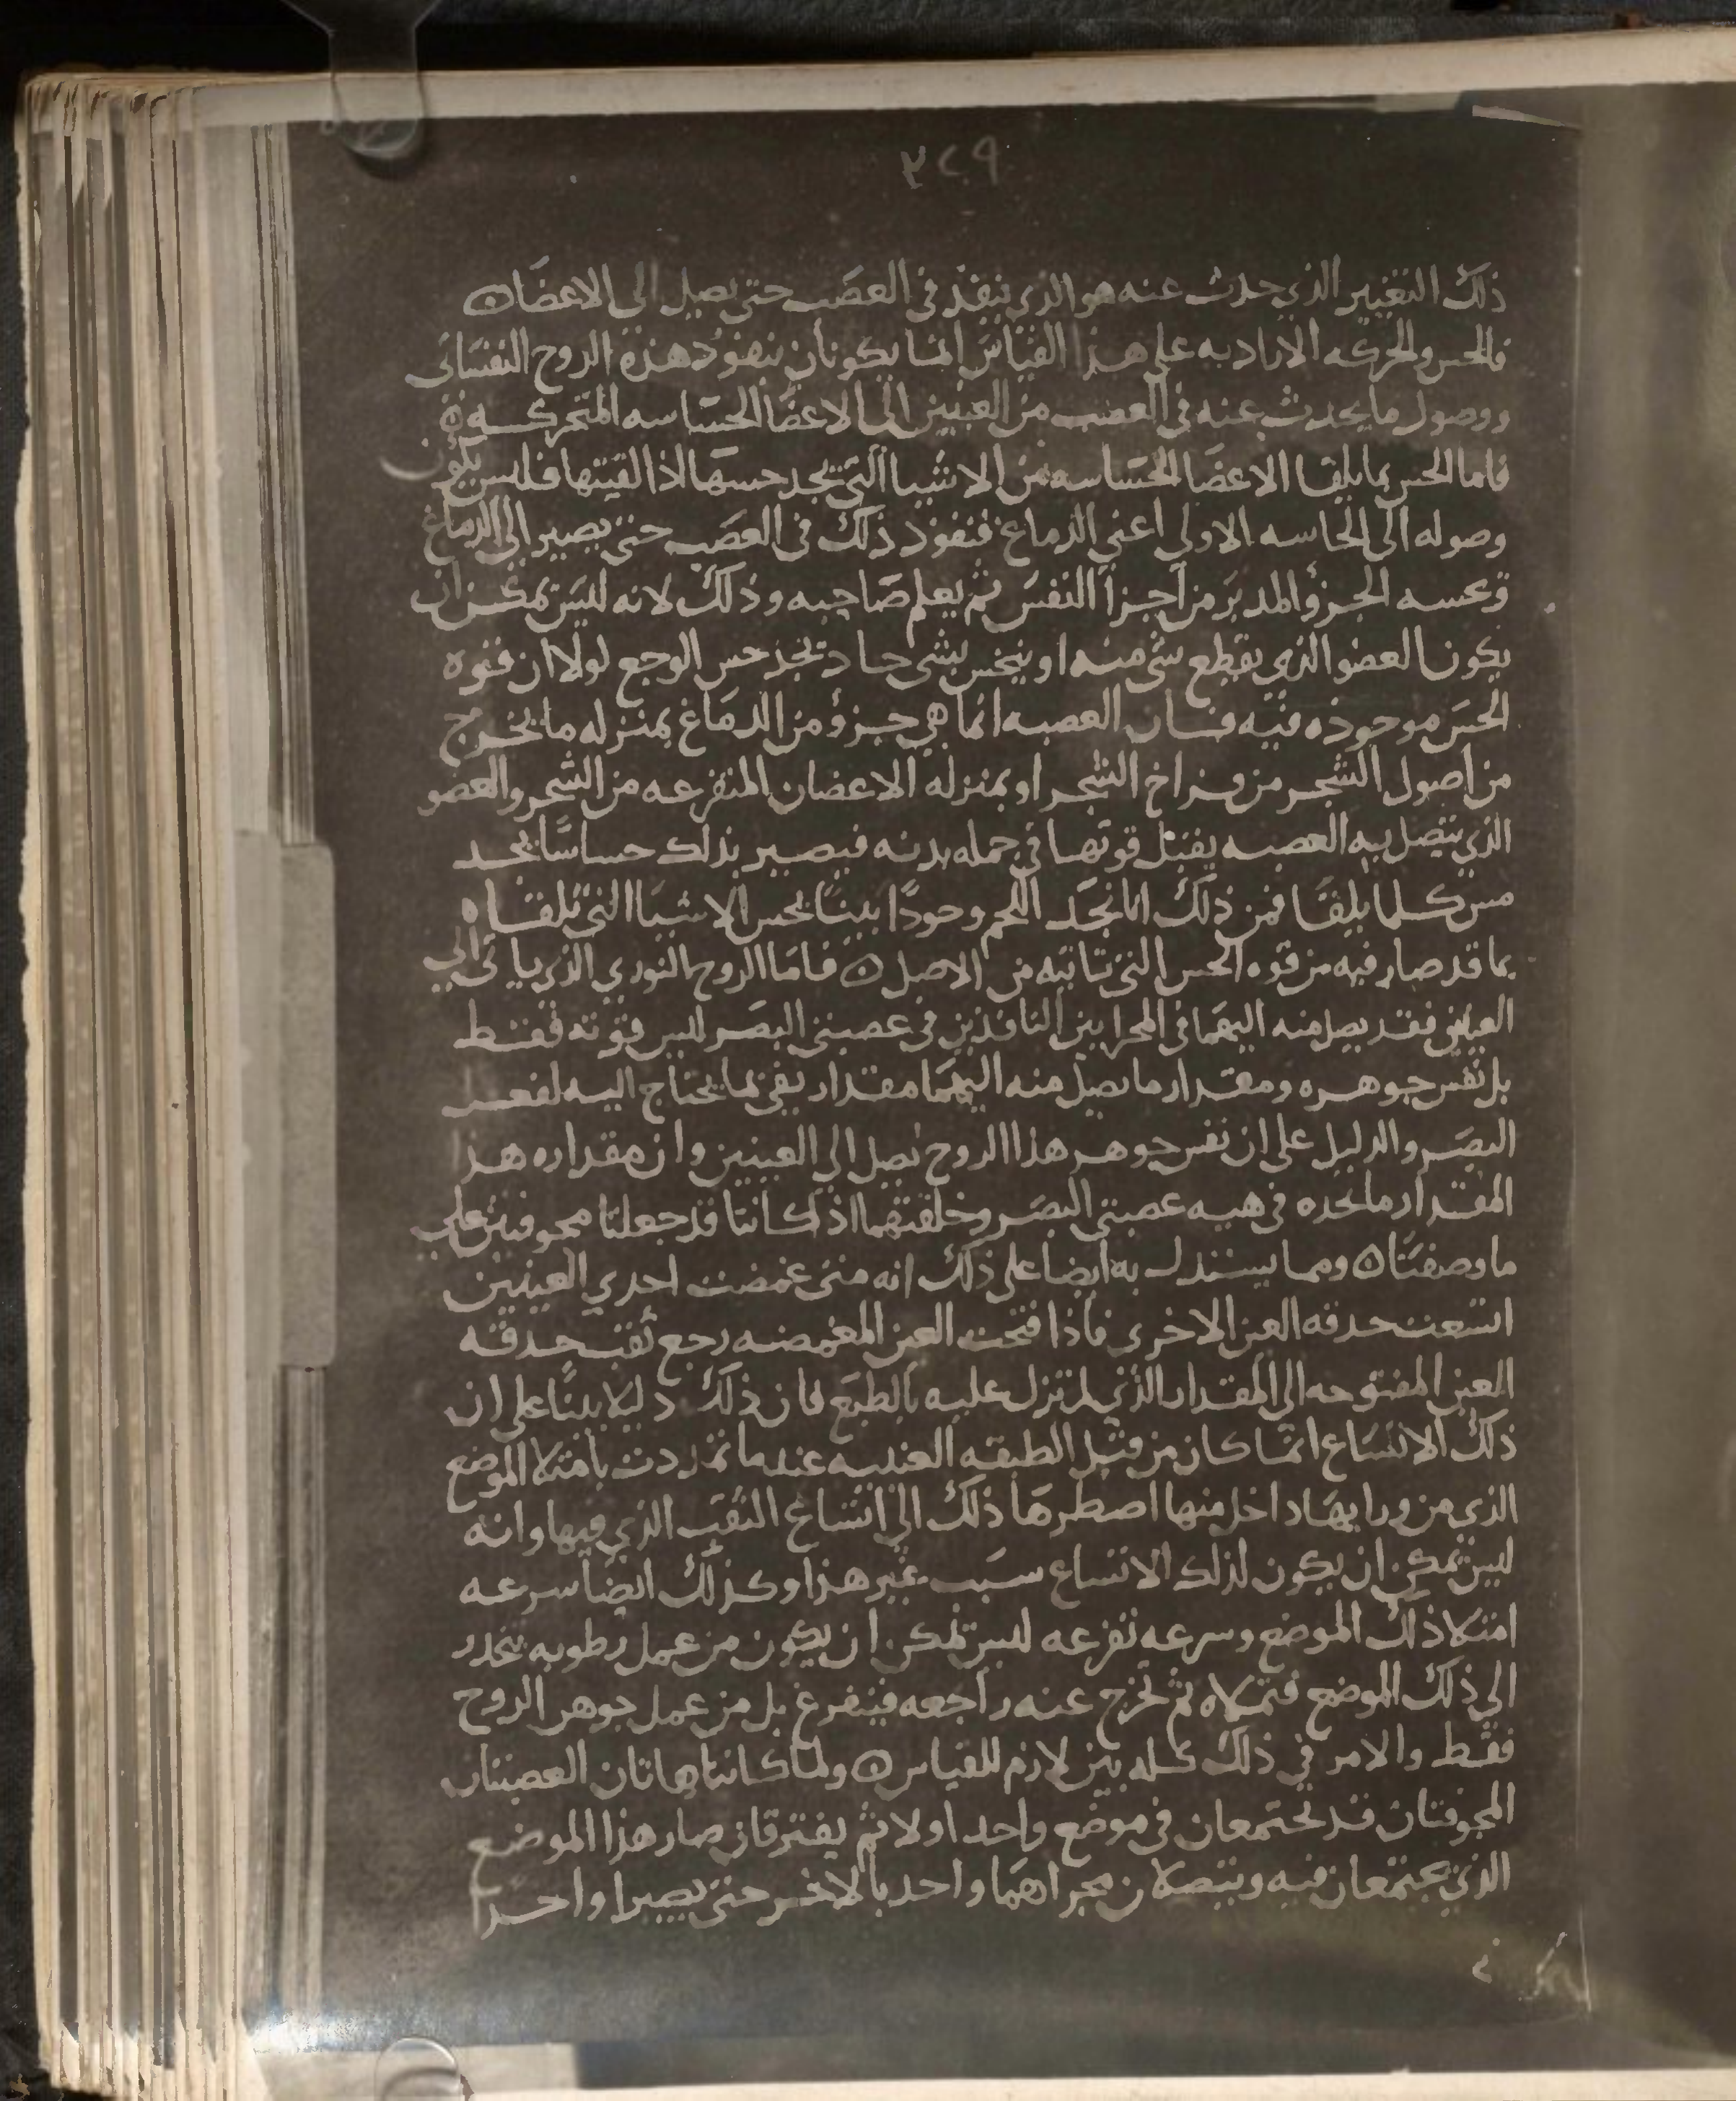 ٣٢٩
ذلك التغيير الذي حدث عنه هو الذي ينفذ في العصب حتى يصل الى الاعضا ه
فالحس والحركه الاراديه على هذا القياس انما يكونان بنفوذ هذه الروح النفساني
ووصول ما يحدث عنه في العصب من العينين الى الاعضا الحساسه المتحركه ه
فاما الحس بما يلقا الاعضا الحساسه من الاشيا التي تجد حسها اذا لقيتها فليس يكون
وصوله الى الحاسه الاولى اعني الدماغ فنفوذ ذلك في العصب حتى يصير الى الدماغ
وبحسه الجزؤ المدبر من اجزا النفس ثم يعلم صاحبه وذلك لانه ليس يمكن ان
يكون العضو الذي يقطع شي منه او ينخس بشي حاد تجد حس الوجع لولا ان قوه
الحس موجوده فيه فان العصبه انما هي جزؤ من الدماغ بمنزله ما يخرج
من اصول الشجر من فراخ الشجر او بمنزله الاغصان المتفرعه من الشجر والعضو
الذي يتصل به العصبه يقبل قوتها في جمله بدنه فيصير بذلك حساسا يجد
مس كلما يلقا فمن ذلك انا نجد اللحم وجودا بينا يحس الاشيا التي تلقاه
بما قد صار فيه من قوه الحس التي تاتيه من الاصل ه فاما الروح النوري الذي ياتي الى
العينين فقد يصل منه اليهما في المجرابين النافذين في عصبتي البصر ليس قوته فقط
بل نفس جوهره ومقدار ما يصل منه اليهما مقدار يفي بما يحتاج اليه لفعل
البصر والدليل على ان نفس جوهر هذا الروح تصل الى العينين وان مقداره هذا
المقدار ما نجده في هيه عصبتي البصر وخلقتهما اذ كانتا قد جعلتا مجوفتين على
ما وصفنا ه ومما يستدل به ايضا على ذلك انه متى غمضت احدي العينين
اتسعت حدقه العين الاخرى فاذا فتحت العين المغمضه رجع ثقب حدقه
العين المفتوحه الى المقدار الذي لم تزل عليه بالطبع فان ذلك دليلا بينا على ان
ذلك الاتساع انما كان من قبل الطبقه العنبيه عندما تمددت بامتلا الموضع
الذي من ورايها داخل منها اضطرها ذلك الى اتساع الثقب الذي فيها وانه
ليس يمكن ان يكون لذلك الاتساع سبب غير هذا وكذلك ايضا سرعه
امتلا ذلك الموضع وسرعه تفرغه ليس يمكن ان يكون من عمل رطوبه تنحدر
الى ذلك الموضع فتملاه ثم تخرج عنه راجعه فيتفرغ بل من عمل جوهر الروح
فقط والامر في ذلك كله بين لازم للقياس ه ولما كانتا هاتان العصبتان
المجوفتان قد تجتمعان في موضع واحد اولا ثم يفترقان صار هذا الموضع
الذي يجتمعان فيه ويتصلان مجراهما واحد بالاخر حتى يصيرا واحدا